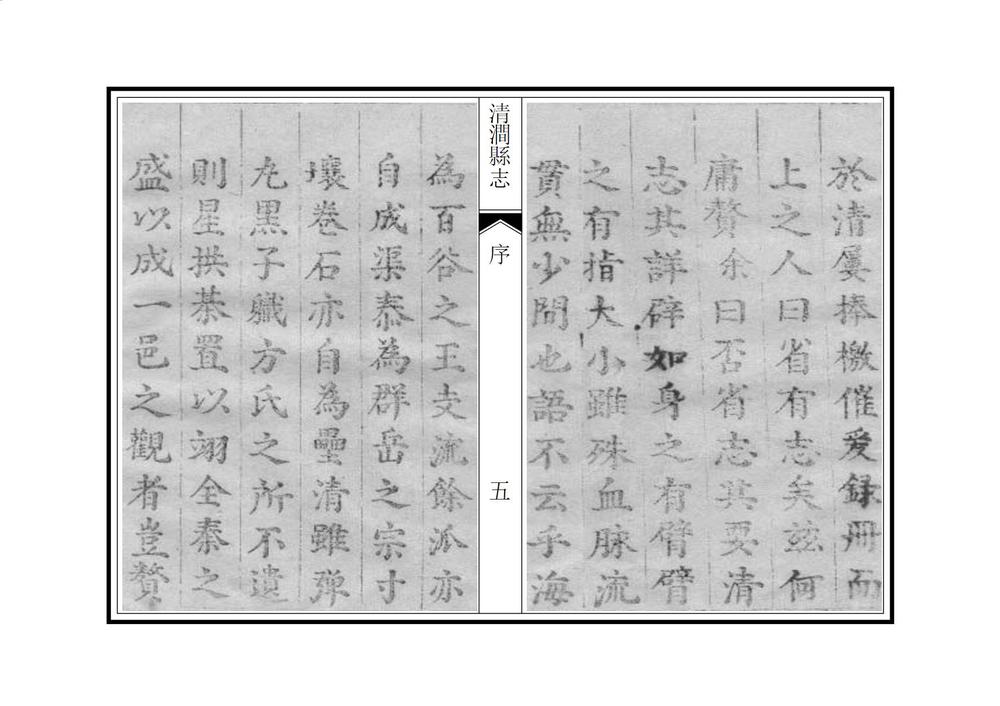 於清屢捧檄催爰録冊而
上之人曰省有志矣茲何
庸贅余曰否省志其要清
志其詳辟如身之有臂臂
之有指大小雖殊血脉流
貫無少間也語不云乎海
清澗縣志
序
五
為百谷之王支流餘派亦
自成渠泰為群岳之宗寸
壤卷石亦自為壘清雖彈
丸黑子職方氏之所不遺
則星拱棊置以翊全秦之
盛以成一邑之觀者豈贅